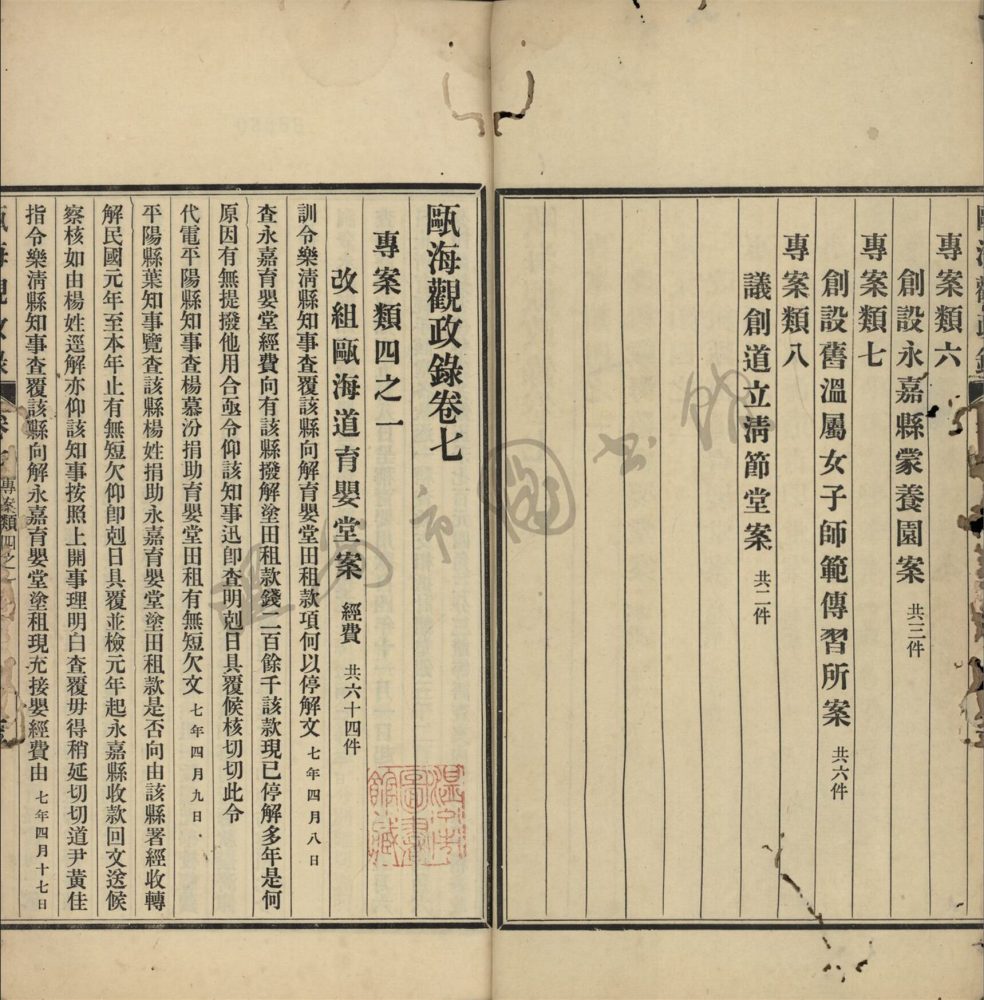 專案類六
創設永嘉縣蒙養園案 共三件
專案類七
創設舊溫屬女子師範傳習所案 共六件
專案類八
議創道立淸節堂案 共二件
甌海觀政錄卷七
專案類四之一
改組甌海道育嬰堂案 經費 共六十四件
訓令樂淸縣知事查覆該縣向解育嬰堂田租款項何以停解文 七年四月八日
查永嘉育嬰堂經費向有該縣撥解塗田租款錢二百餘千該款現已停解多年是何
原因有無提撥他用合亟令仰該知事迅卽查明剋日具覆候核切切此令
代電平陽縣知事查楊慕汾捐助育嬰堂田租有無短欠文 七年四月九日
平陽縣葉知事覽查該縣楊姓捐助永嘉育嬰堂塗田租款是否向由該縣署經收轉
解民國元年至本年止有無短欠仰卽剋日具覆並檢元年起永嘉縣收款回文送候
察核如由楊姓逕解亦仰該知事按照上開事理明白查覆毋得稍延切切道尹黃佳
指令樂淸縣知事查覆該縣向解永嘉育嬰堂塗租現充接嬰經費由 七年四月十七日
專案類四之一
溫州市圖書館藏